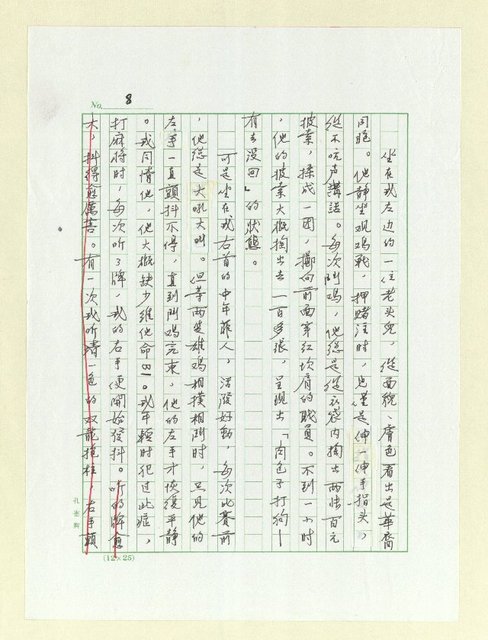 No. 8
坐在我左边的一位老头兒，從面貌、膚色看出是華裔
同胞。他静坐观鸡戰，押賭注時，只是伸伸手指头，
從不吭声講话。每次鬥鸡，他总是從衣袋内掏出两张百元
披索，揉成一团，擲向前面穿红坎肩的職員。不到一小时
，他的披索大概掏出去一百多张，呈現出「肉包子打狗—
有去没回」的狀態。
可是坐在我右首的中年菲人，活潑好動，每次比賽前
，他总是大吼大叫。但等两隻雄鸡相撲相鬥时，只見他的
左手一直顫抖不停，直到鬥鸡完束，他的左手才恢復平静
。我同情他，他大概缺少维他命B1。我年輕时犯过此症，
打麻将时，每次听了牌，我的右手便開始發抖。听的牌愈
大，抖得愈厲害。有一次我听清一色的双龍抱柱，右手顫
孔雀牌
(12×25)